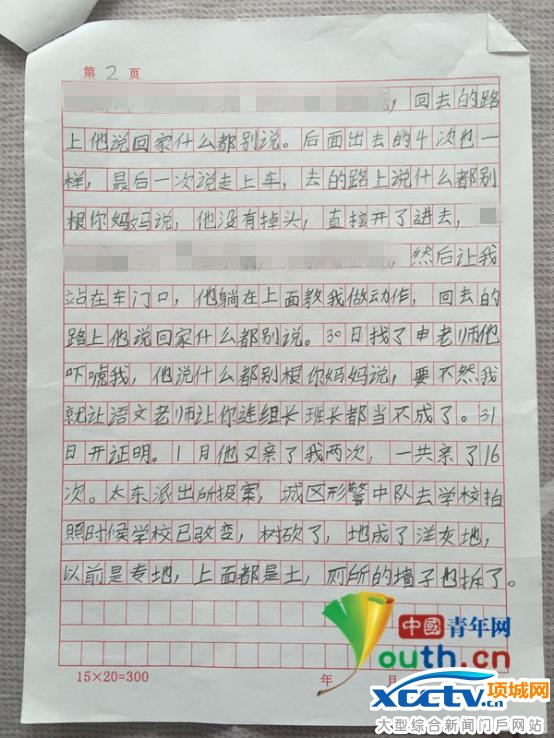 第 2 页
，回去的路
上他说回家什么都别说。后面出去的4次也一
样，最后一次说走上车，去的路上说什么都别
根你妈妈说，他没有掉头，直接开了进去，
，然后让我
站在车门口，他躺在上面教我做动作，回去的
路上他说回家什么都别说。30日找了申老师他
吓唬我，他说什么都别根你妈妈说，要不然我
就让语文老师让你连组长班长都当不成了。31
日开证明。1月他又亲了我两次，一共亲了16
次。太东派出所投案，城区形警中队去学校拍
照时候学校已改变，树砍了，地成了洋灰地，
以前是专地，上面都是土，厕所的墙子也拆了。
15×20=300 年 月
中國青年网
outh.cn
xcctv.cn 项城网
大型综合新闻门戶网站